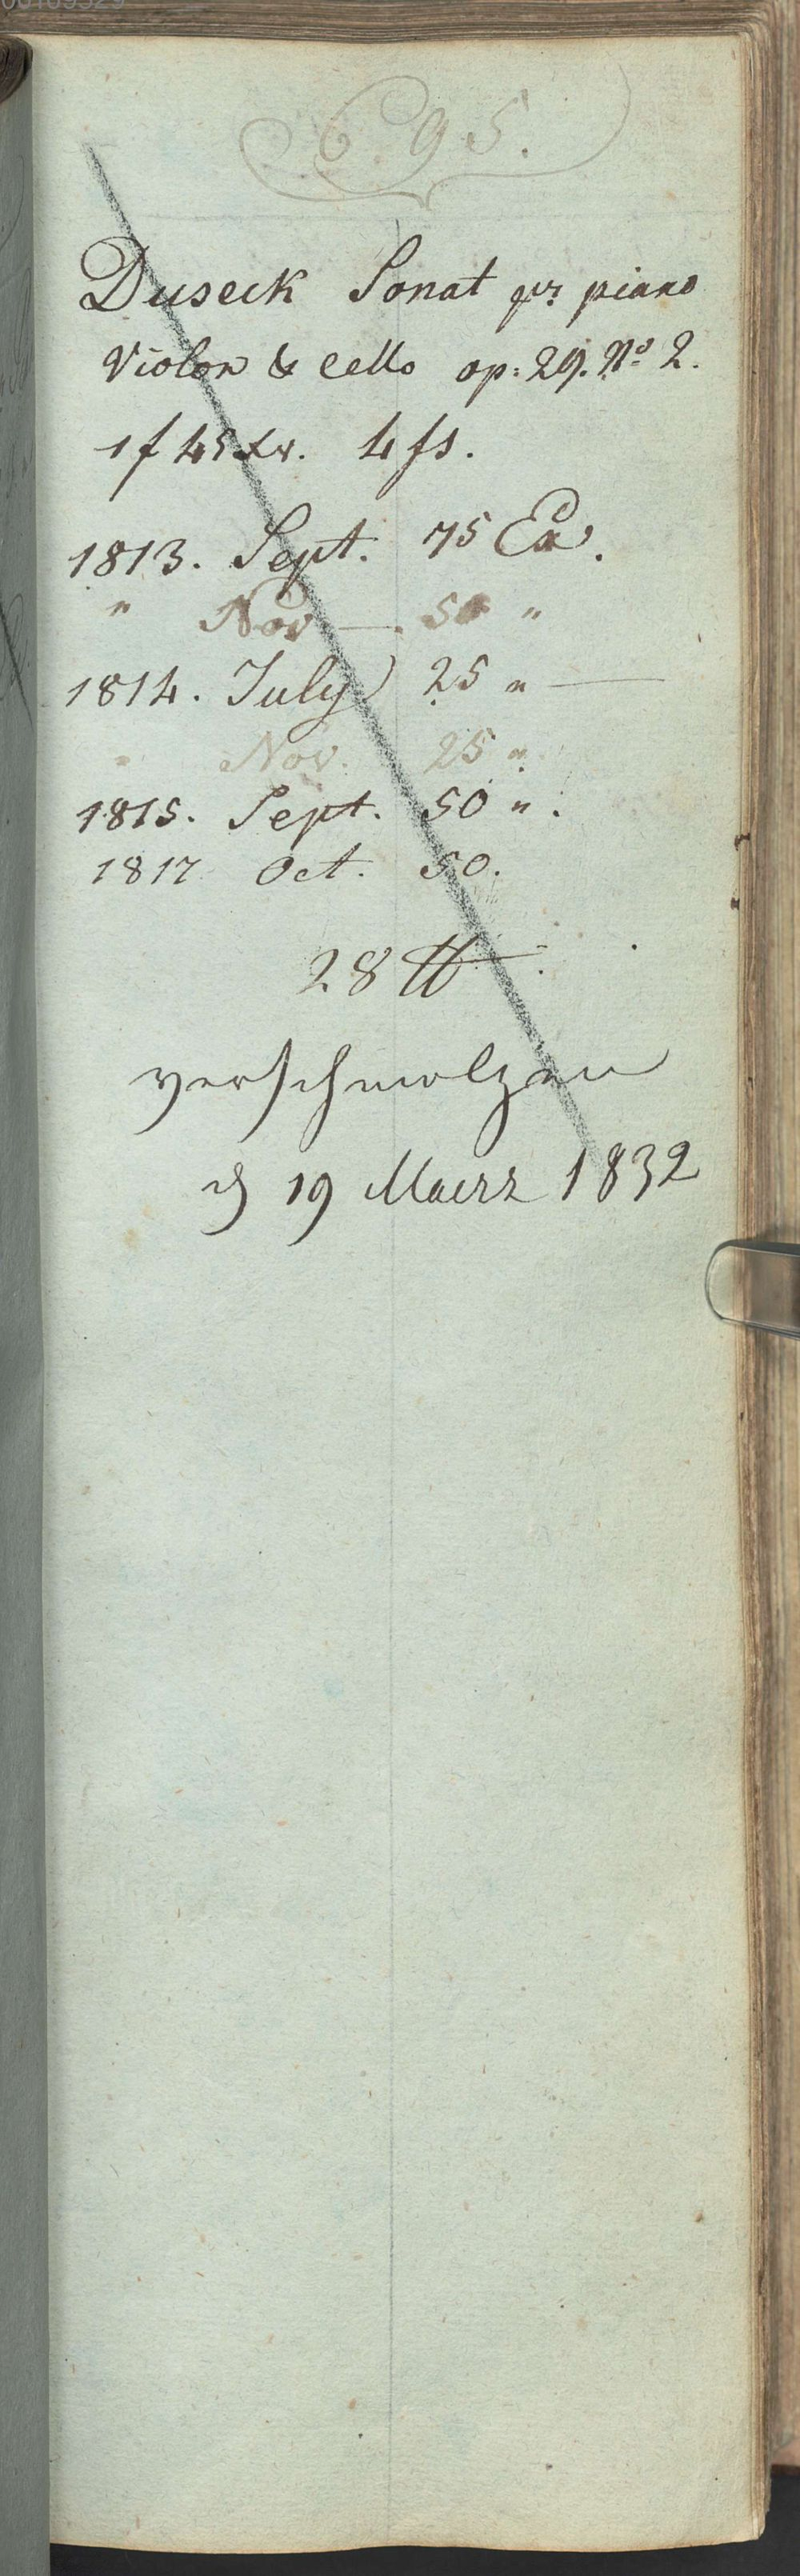 00169529
695.
Duseck Sonat pr piano
Violon & Cello op: 29. No 2.
1f 45 xr. 4 fs.
1813. Sept. 75 Ex.
" Nov — . 50 "
1814. July 25 " —
" Nov. 25 "
1815. Sept. 50 ".
1817 Oct. 50.
28 ℔
verschmolzen
d 19 Maerz 1832